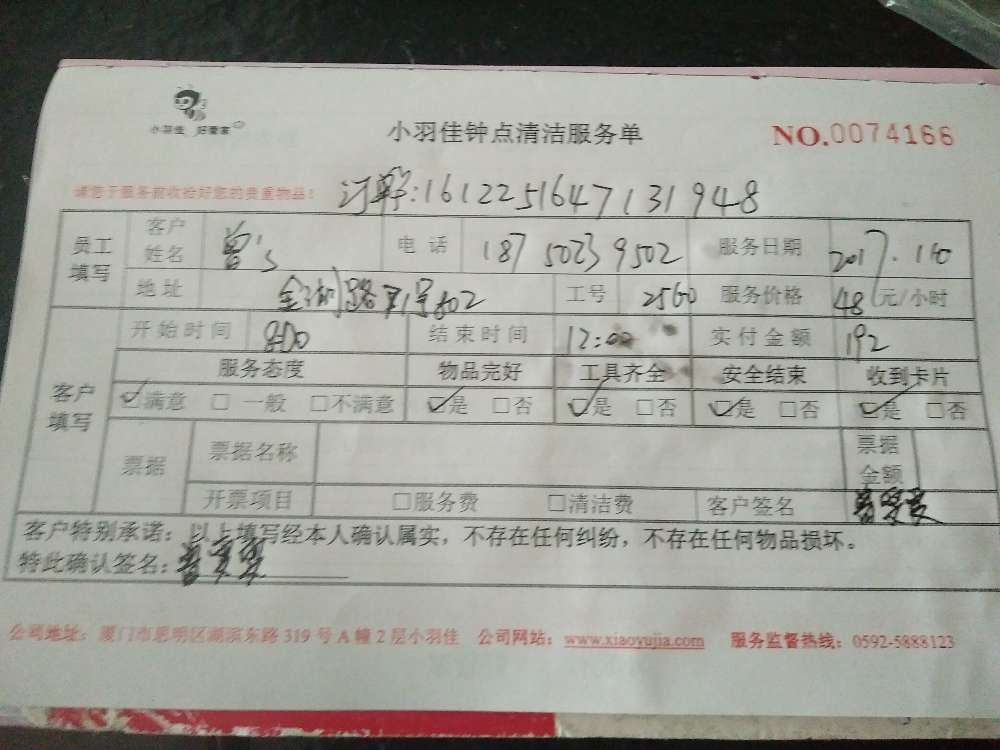 小羽佳 好管家
小羽佳钟点清洁服务单 NO.0074166
请您于服务前收检好您的贵重物品！ 订单号:161225164713194 8
员工填写 客户姓名 曾's 电话 18750239502 服务日期 2017.1.10
地址 金湖路71号802 工号 2560 服务价格 48元/小时
客户填写 开始时间 8:00 结束时间 12:00 实付金额 192
服务态度 物品完好 工具齐全 安全结束 收到卡片
☑满意 □一般 □不满意 ☑是 □否 ☑是 □否 ☑是 □否 ☑是 □否
票据 票据名称 票据金额
开票项目 □服务费 □清洁费 客户签名
客户特别承诺：以上填写经本人确认属实，不存在任何纠纷，不存在任何物品损坏。
特此确认签名：
公司地址：厦门市思明区湖滨东路 319 号 A 幢 2 层小羽佳 公司网站：www.xiaoyujia.com 服务监督热线：0592-5888123